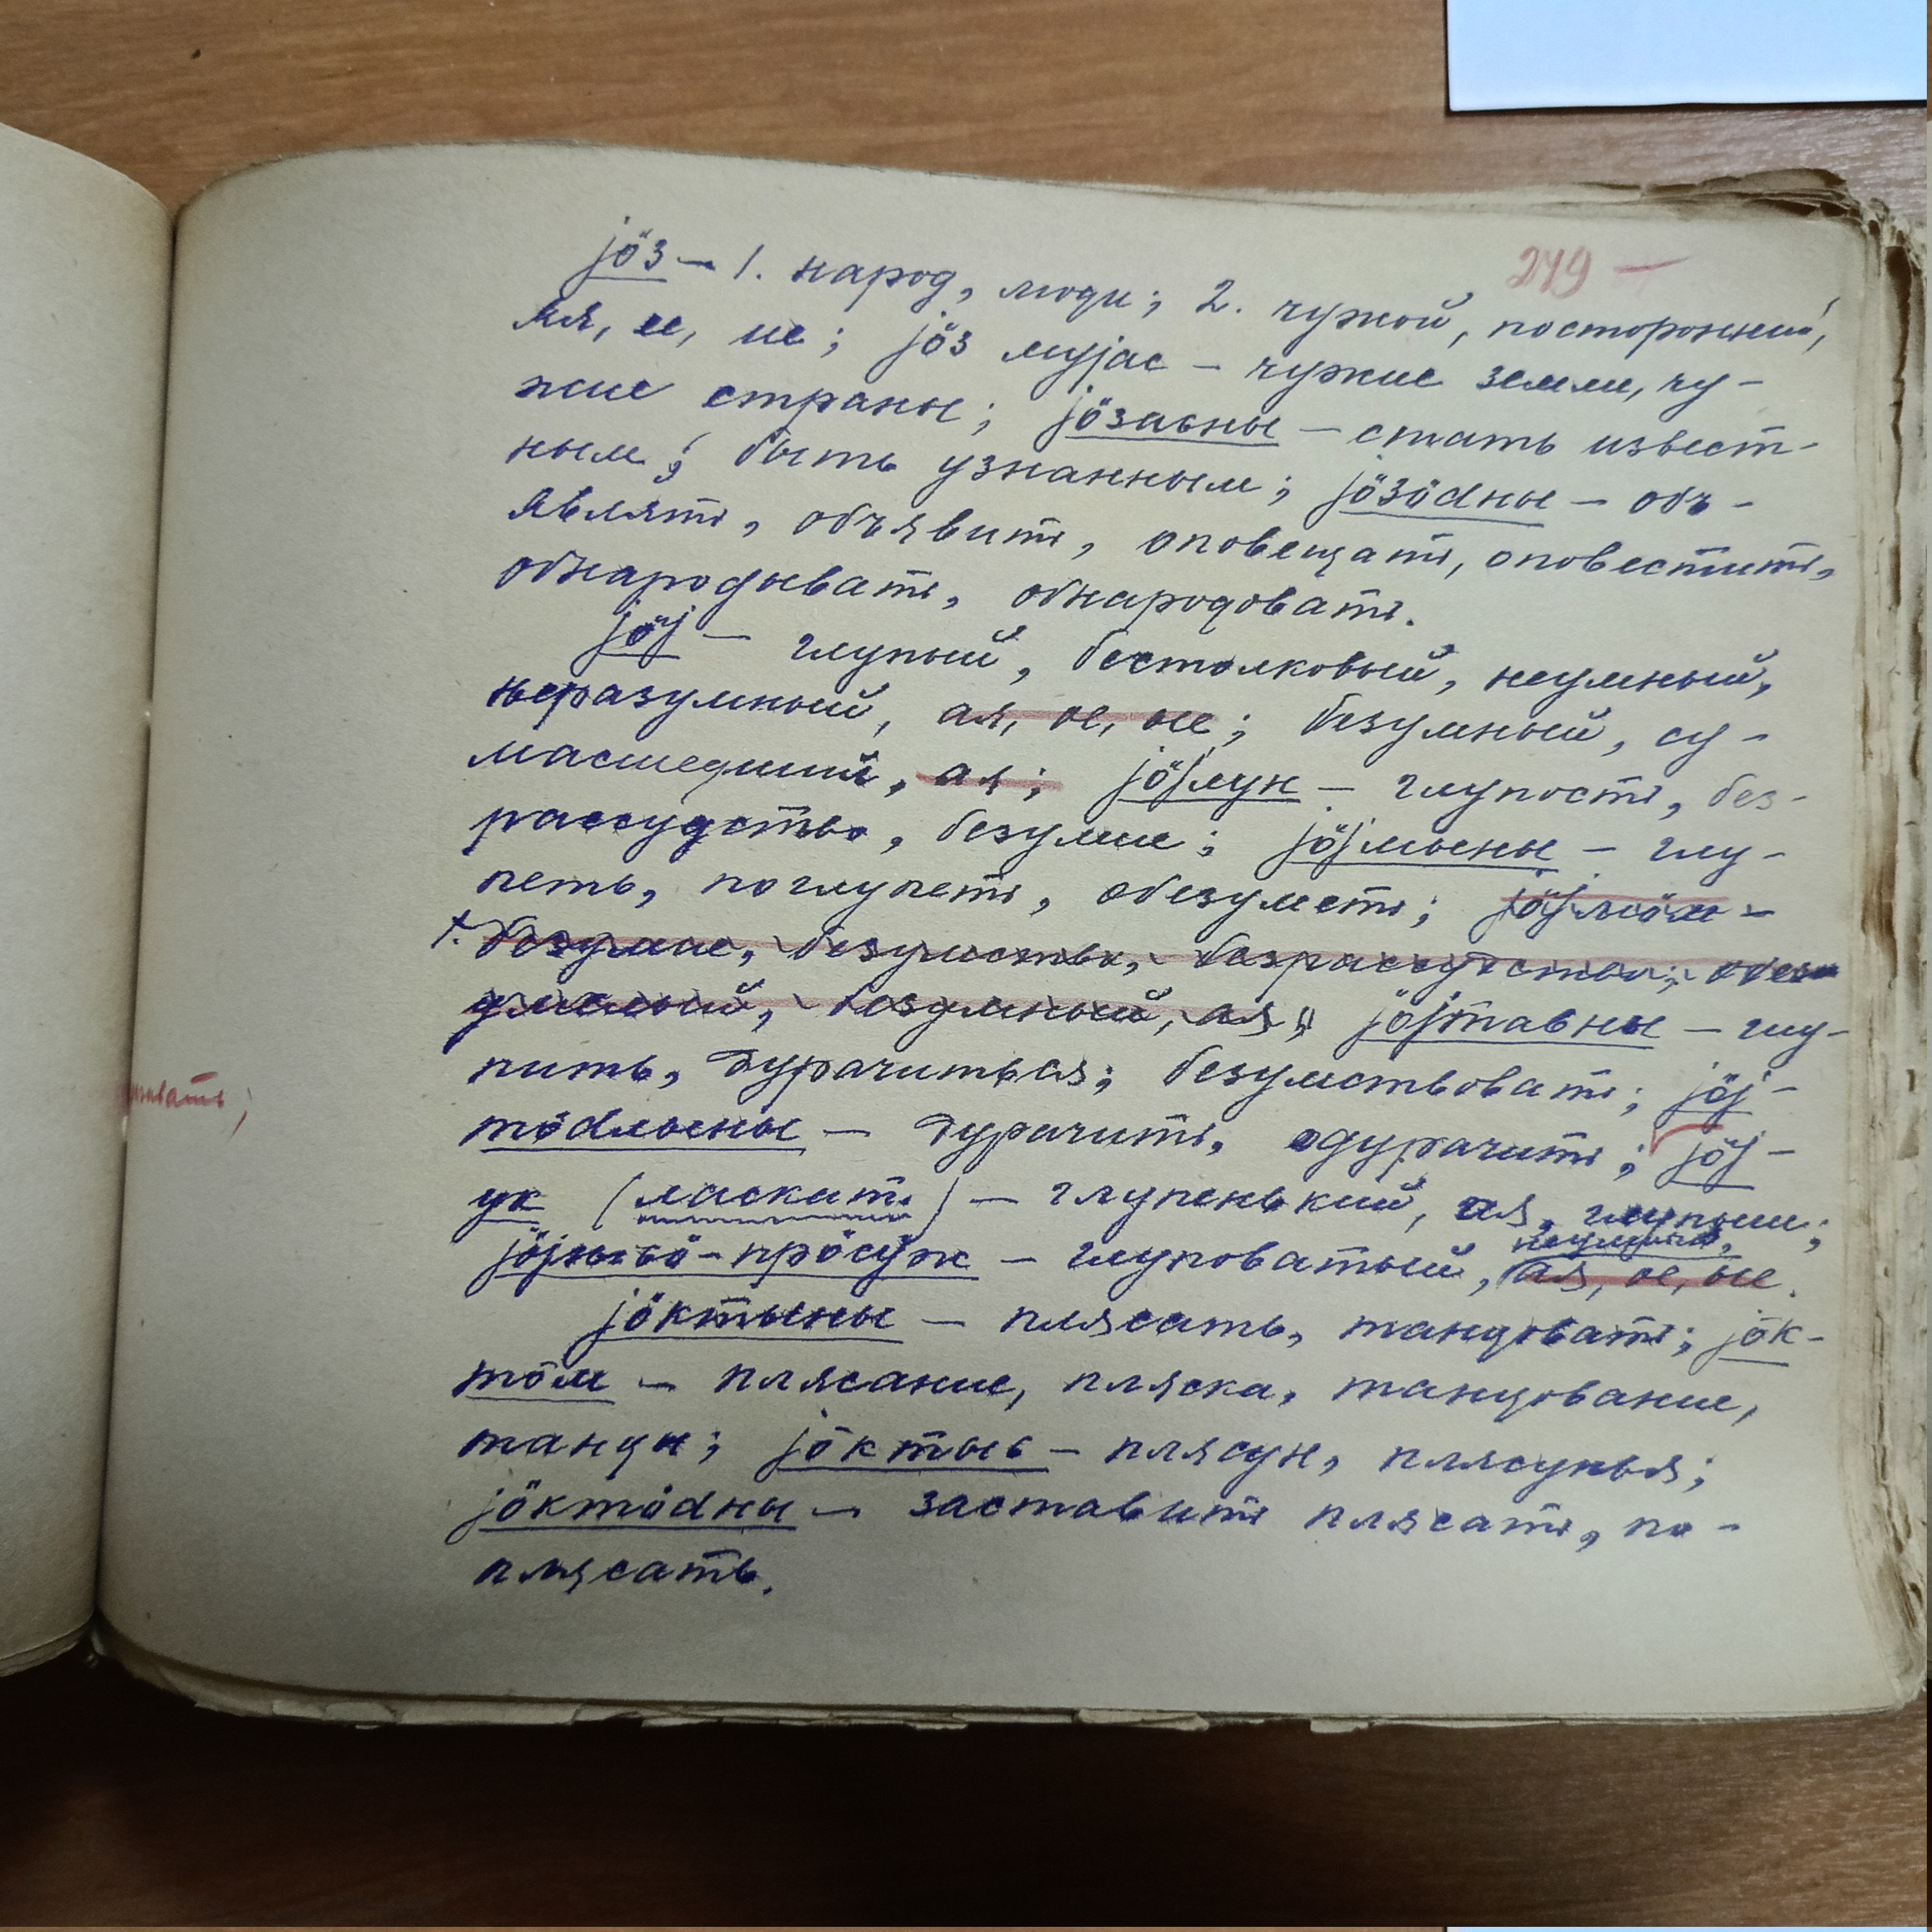 279 —
jöз — 1. народ, люди; 2. чужой, посторонний,
яя, ее, ие; jöз муjас — чужие земли, чу-
жие страны; jöзавны — стать извест-
ным; быть узнанным; jöзödны — объ-
являть, объявить, оповещать, оповестить,
обнародывать, обнародовать.
jöj — глупый, бестолковый, неумный,
неразумный, ая, ое, ые; безумный, су-
масшедший, ая; jöjлун — глупость, без-
рассудство, безумие; jöjмыны — глу-
петь, поглупеть, обезуметь; jöjмöм —
1. безумие, безумство, безрассудство;
умелый, безумный, ая; jöjтавны — глу-
пить, дурачиться; безумствовать; jöj-
тödлыны — дурачить, одурачить; jöj-
ук (ласкат.) — глупенький, ая, глупыш;
неумный,
jöjныв — глуповатый, ая, ое, ые.
jöктыны — плясать, танцовать; jöк-
тöм — плясание, пляска, танцование,
танцы; jöктыс — плясун, плясунья;
jöктödны — заставить плясать, по-
плясать.